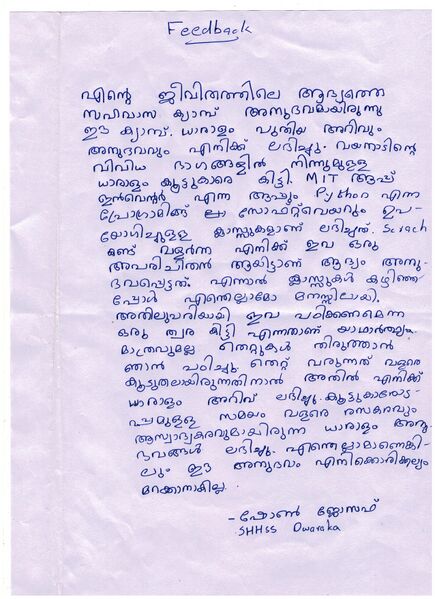 Feedback
എന്റെ ജീവിതത്തിലെ ആദ്യത്തെ
സഹവാസ ക്യാമ്പ് അനുഭവമായിരുന്നു
ഈ ക്യാമ്പ്. ധാരാളം പുതിയ അറിവും
അനുഭവവും എനിക്ക് ലഭിച്ചു. വയനാടിന്റെ
വിവിധ ഭാഗങ്ങളിൽ നിന്നുമുള്ള
ധാരാളം കൂട്ടുകാരെ കിട്ടി. MIT ആപ്പ്
ഇൻവെന്റർ എന്ന ആപ്പും Python എന്ന
പ്രോഗ്രാമിങ്ങ് സോഫ്റ്റ്‌വെയറും ഉപ-
യോഗിച്ചുള്ള ക്ലാസ്സുകളാണ് ലഭിച്ചത്. Scrach
കണ്ട് വളർന്ന എനിക്ക് ഇവ ഒരു
അപരിചിതൻ ആയിട്ടാണ് ആദ്യം അനു-
ഭവപ്പെട്ടത്. എന്നാൽ ക്ലാസ്സുകൾ കഴിഞ്ഞ-
പ്പോൾ എന്തെല്ലാമോ മനസ്സിലായി.
അതിലുപരിയായി ഇവ പഠിക്കണമെന്ന
ഒരു ത്വര കിട്ടി എന്നതാണ് യാഥാർത്ഥ്യം.
മാത്രവുമല്ല തെറ്റുകൾ തിരുത്താൻ
ഞാൻ പഠിച്ചു. തെറ്റ് വരുന്നത് വളരെ
കൂടുതലായിരുന്നതിനാൽ അതിൽ എനിക്ക്
ധാരാളം അറിവ് ലഭിച്ചു. കൂട്ടുകാരോട-
പ്പമുള്ള സമയം വളരെ രസകരവും
ആസ്വാദ്യകരവുമായിരുന്ന ധാരാളം അനു-
ഭവങ്ങൾ ലഭിച്ചു. എന്തെല്ലാമാണെങ്കി-
ലും ഈ അനുഭവം എനിക്കൊരിക്കലും
മറക്കാനാകില്ല.
- ഷോൺ ജോസഫ്
SHHSS Dwaraka